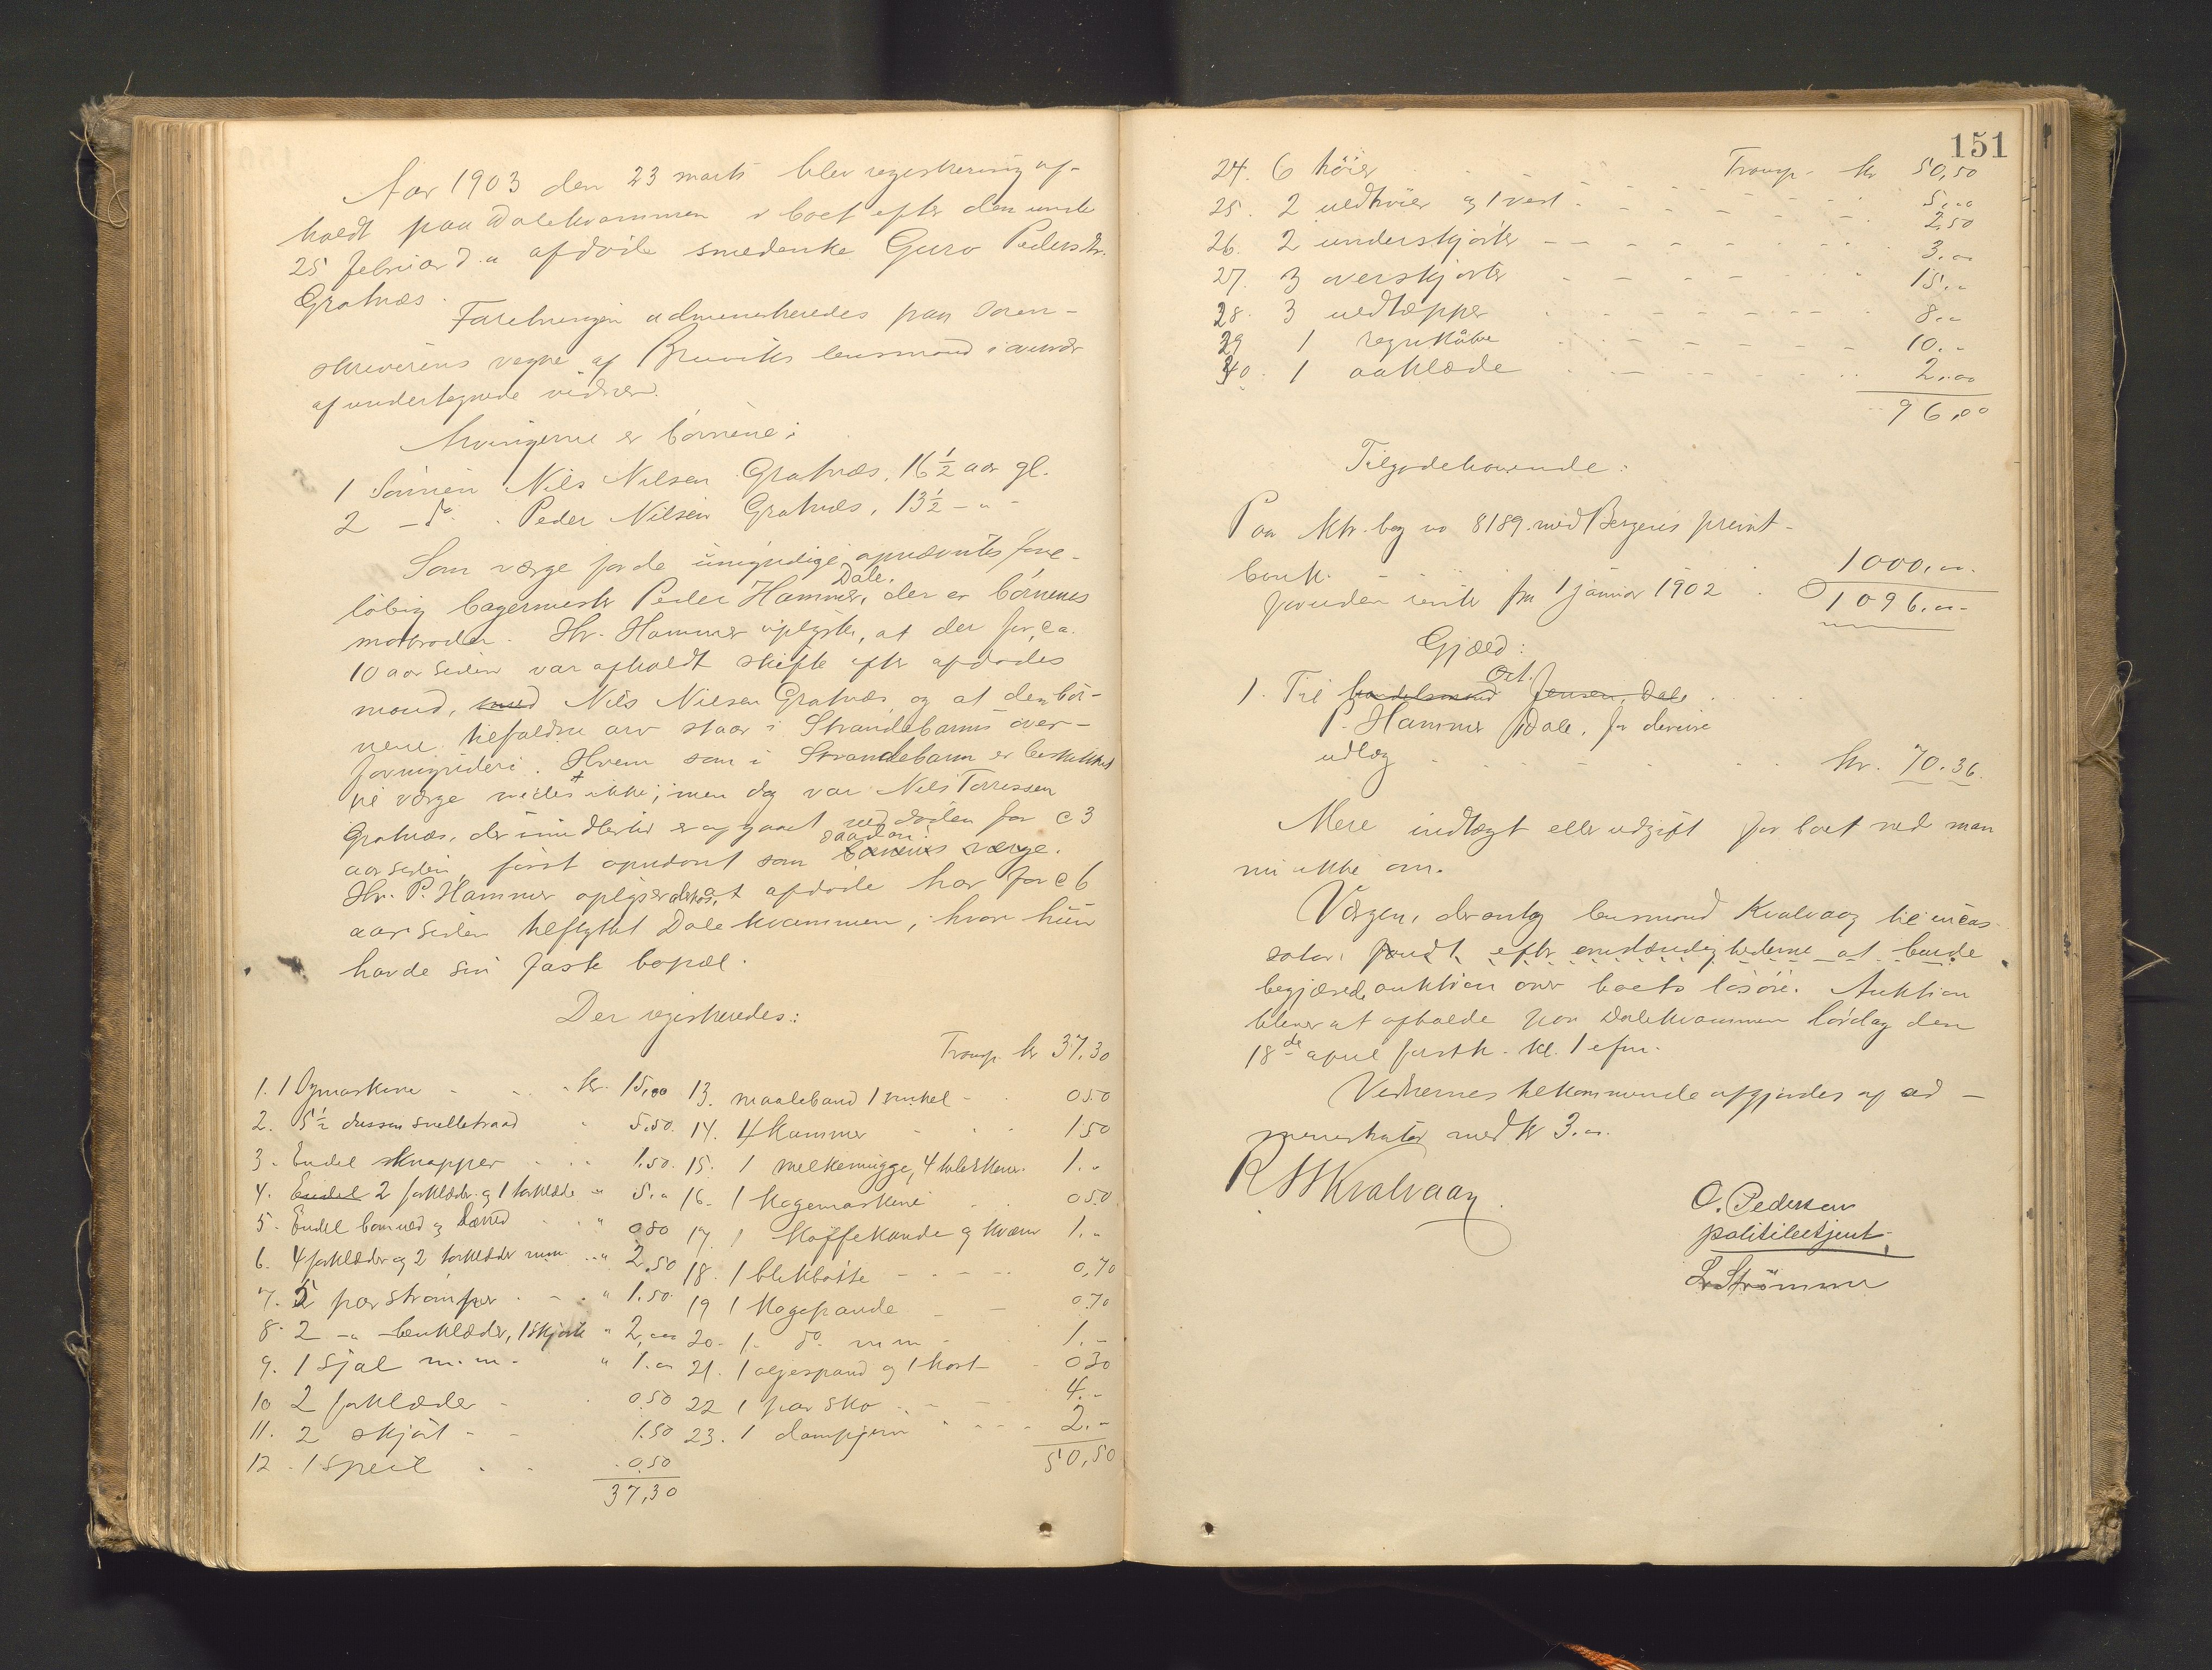 Aar 1903 den 23 marts blev registrering af-
holdt paa Dalekvammen i boet efter den under
25 februar d.a afdøde smedenke Guro Pedersdtr.
Gratnæs.
Forretningen administreredes paa soren-
skriverens vegne af Bruviks lensmand i overvær
af undertegnede vidner.
Arvingerne er børnene:
1 Sønnen Nils Nilsen Gratnæs, 16 1/2 aar gl.
2 - do. Peder Nilsen Gratnæs, 13 1/2 - " -
Som værge for de umyndige opnævntes fore-
løbig bagermester Peder Hammer, Dale, der er børnenes
morbroder. Hr. Hammer oplyste, at der for ca.
10 aar siden var afholdt skifte efter afdødes
mand, smed Nils Nilsen Gratnæs, og at den bør-
nene tilfaldne arv staar i Strandebarms over-
formynderi. Hvem som i Strandebarm er beskikket
til værge vides ikke; men dog var Nils Torressen
Gratnæs, der imidlertid er afgaaet ved døden for c 3
aar siden, først opnævnt som saadan. børnenes værge.
Hr. P. Hammer oplyser derhos, at afdøde har for c 6
aar siden tilflyttet Dalekvammen, hvor hun
havde sin faste bopæl.
Der registreredes:
Transp. kr 37,30
1. 1 symaskine - kr. 15,00
2. 5 1/2 dussin snelletraad " 5.50.
3. Endel knapper 1.50.
4. Endel 2 forklæder og 1 torklæde " 5."
5. Endel bomuld og lærred " 0.80
6. 4 forklæder og 2 torklæder m.m. " 2.50
7. 5 par strømper " 1.50.
8. 2 - " benklæder, 1 skjorte " 2,00
9. 1 sjal m.m. " 1.00
10 2 forklæder - 0.50
11. 2 skjørt - - 1.50
12. 1 speil 0.50
37,30
13. maaleband 1 vinkel - 0.50
14. 4 kammer 1.50
15. 1 melkemugge, 4 talerkener. 1.-
16. 1 kogemaskine 0.50
17. 1 kaffekande og kværn 1.-
18. 1 blikbøtte 0,70
19 1 kogepande 0.70
20. 1. do. m.m. 1.-
21. 1 oljespand og 1 kost 0.30
22 1 par sko 4.-
23. 1 dampjern 2.-
50,50
151
Transp. kr 50,50
24. 6 høier 5,00
25. 2 uldtrøier og 1 vest 2,50
26. 2 underskjorter 3.00
27. 3 overskjorter 15.-
28. 3 uldtæpper 8.-
29 1 regnkåbe 10.-
30. 1 aaklæde 2.00
96,00
Tilgodehavende:
Paa ktr. bog no 8189 med Bergens privat-
bank. 1000,00
foruden rente fra 1 januar 1902
1096.00
Gjæld:
1. Til handelsmand Ort. Jensen, Dale
P. Hammer Dale, for diverse
udlæg kr. 70.36.
Mere indtægt eller udgift for boet ved man
nu ikke om.
Værgen, der antog lensmand Kvalvaag til incas-
sator, fandt efter omstændighederne at burde
begjære auktion over boets løsøre. Auktion
bliver at afholde paa Dalekvammen lørdag den
18de april førstk. kl. 1 efm.
Vidnernes tilkommende afgjordes af ad-
ministrator med kr 3.00.
R H Kvalvaag.
O. Pedersen
politibetjent
L. Strømme